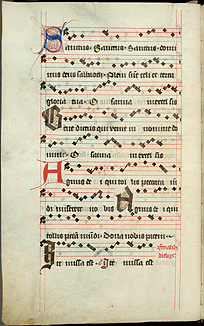 Sanctus Sanctus Sanctus domi
nus deus sabaoth Pleni sunt celi et terra
gloria tua O sanna in excel sis
Bene dictus qui venit in nomine do
mini O sanna in excel sis
Agnus de i qui tol lis peccata
mi serere no bis Agnus de i qui
tollis mundi Dona nobis pacem
Ite missa est Ite missa est